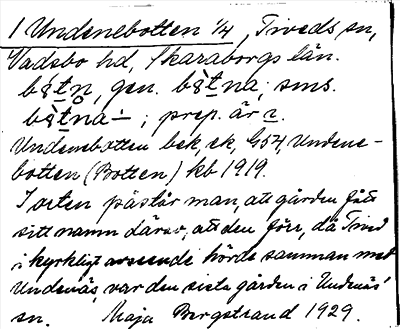 1 Undenebotten 1/4, Tiveds sn,
Vadsbo hd, Skaraborgs län.
bòtn, gen. bòtna; sms.
bòtna-; prep. är i.
Undenebotten bek, ek, G54 Undene-
botten (Botten) kb 1919.
I orten påstår man, att gården fått
sitt namn därav, att den förr, då Tived
i kyrkligt avseende hörde samman med
Undenäs, var den sista gården i Undenäs
sn. Maja Bergstrand 1929.